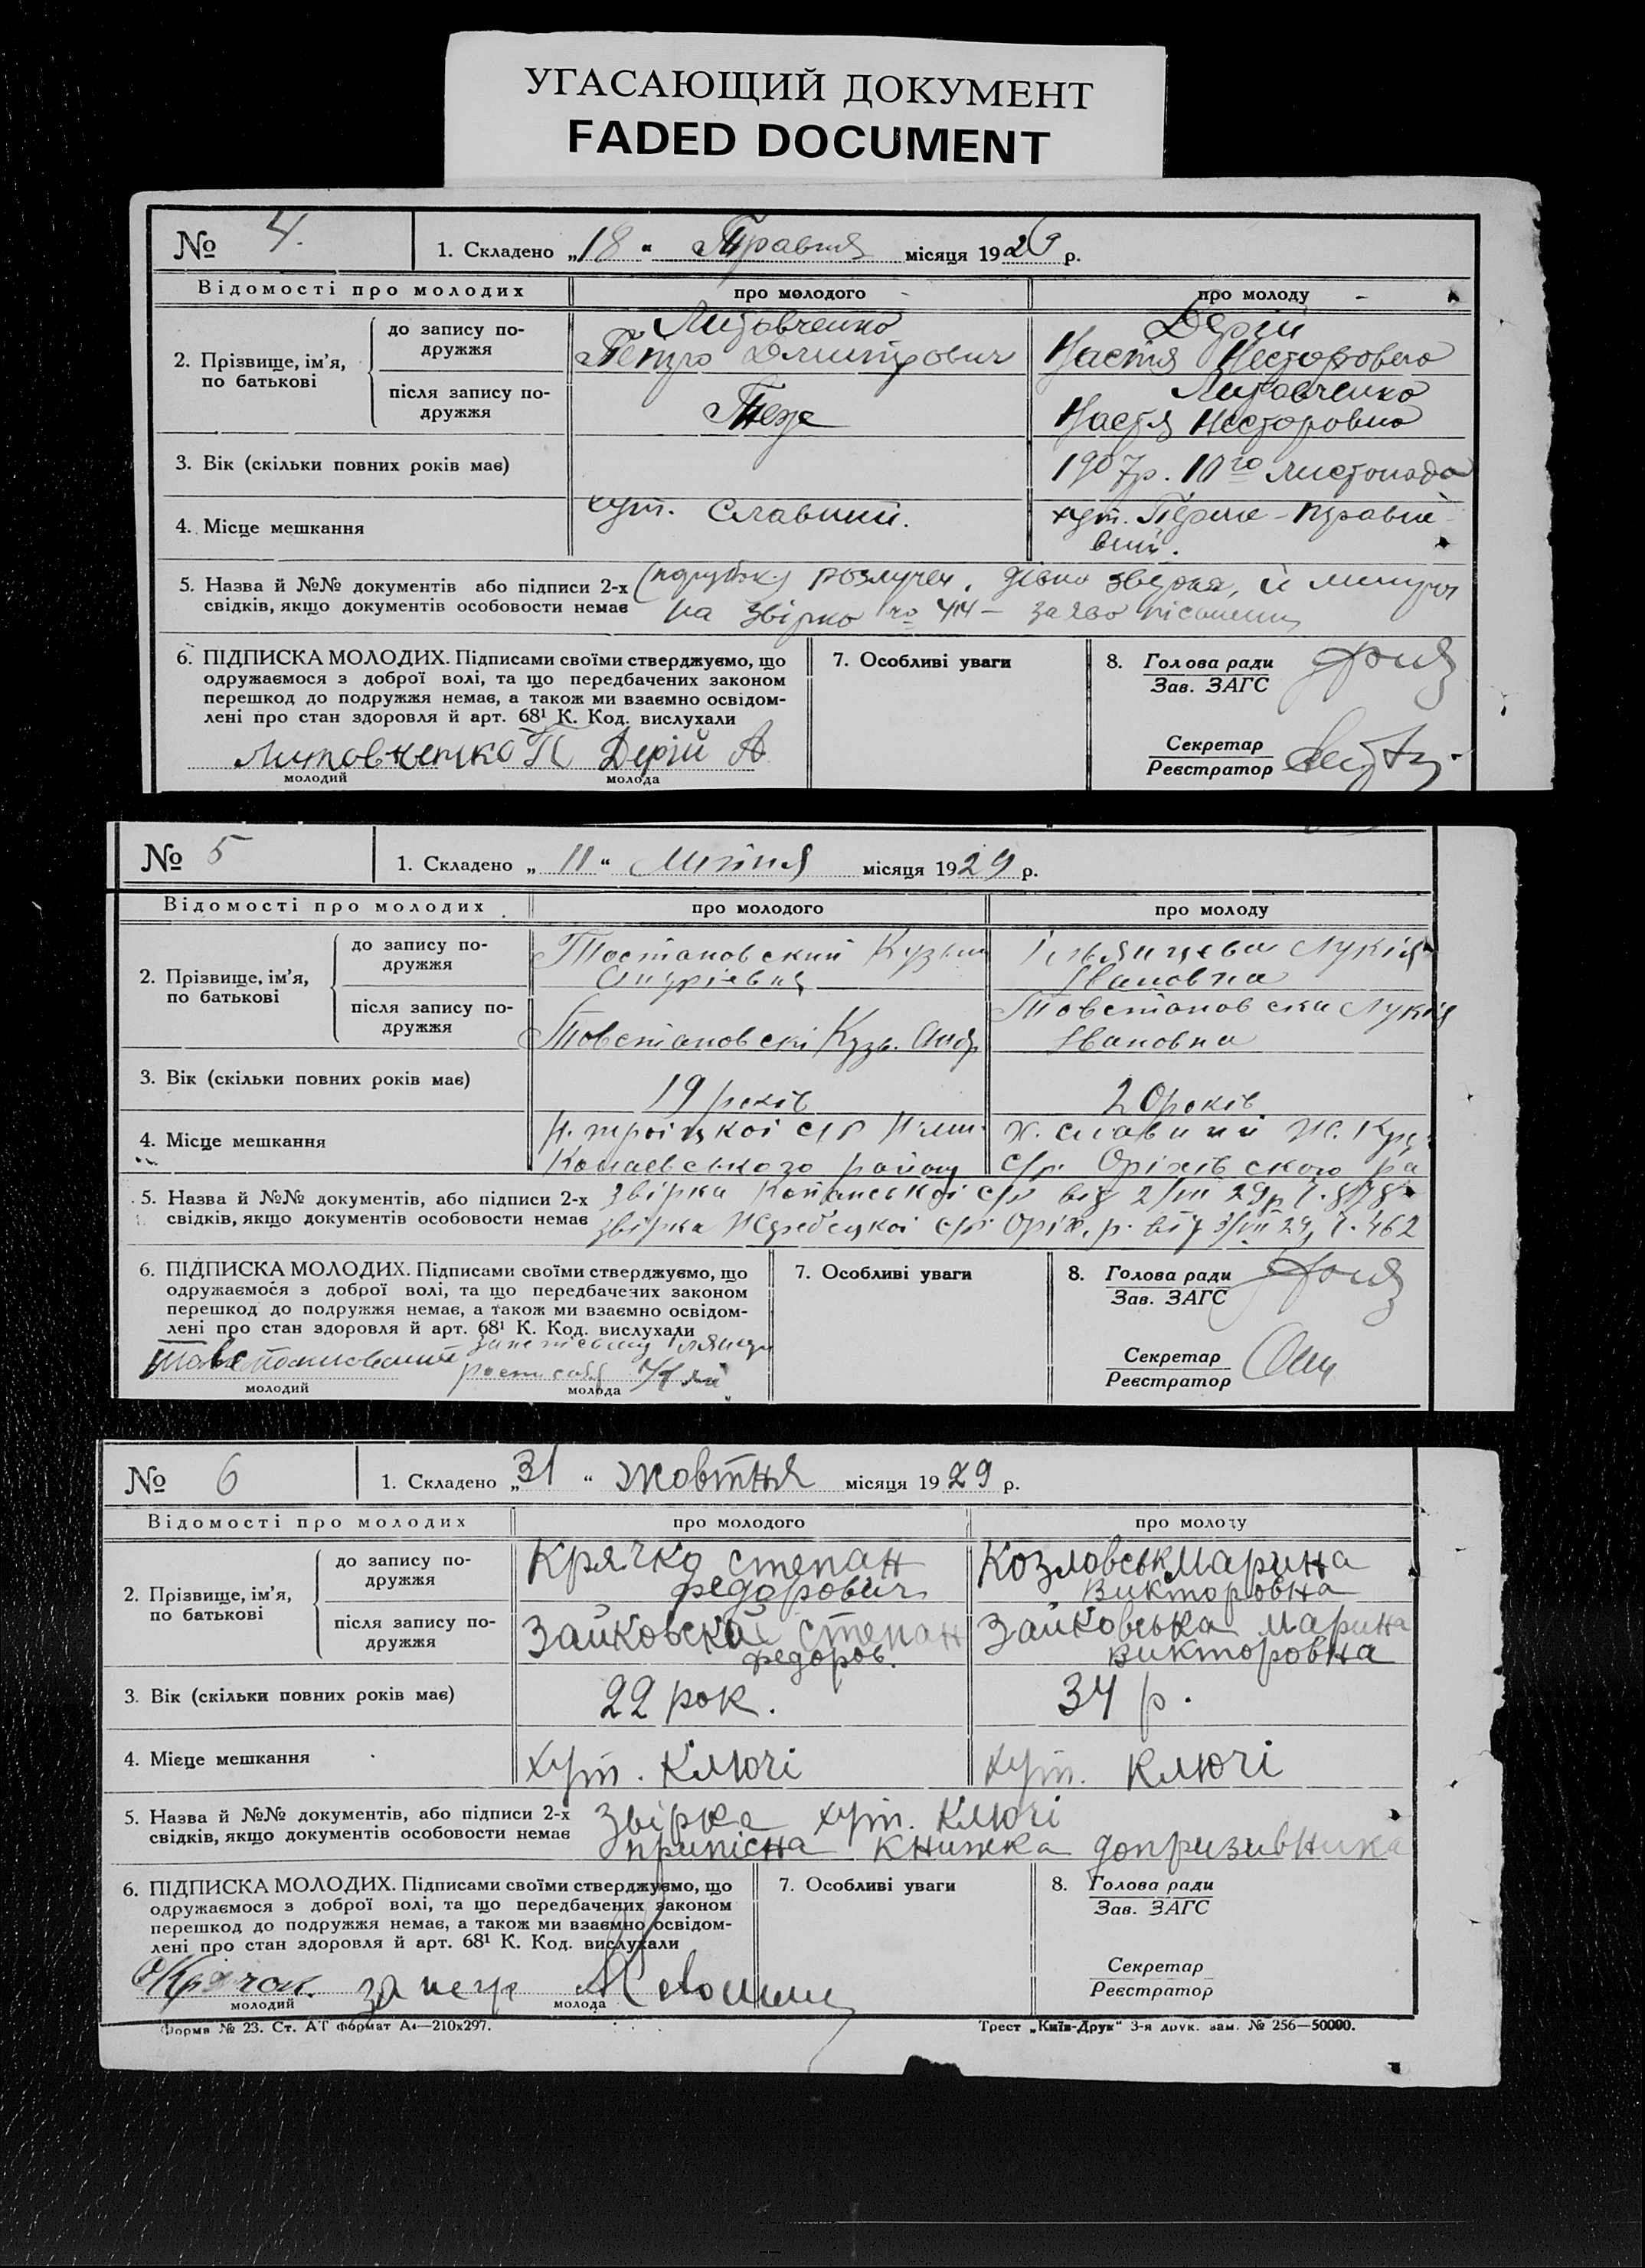 УГАСАЮЩИЙ ДОКУМЕНТ
FADED DOCUMENT
№ 4. 1. Складено „18“ Травня місяця 1929 р.
Відомості про молодих про молодого про молоду
2. Прізвище, ім’я, по батькові
до запису по-
дружжя
Литовченко
Петро Дмитрович
Дерій
Настя Несторовна
після запису по-
дружжя
Теж
Литовченко
Настя Несторовна
3. Вік (скільки повних років має) 1907р. 10го листопада
4. Місце мешкання хут. Славний. хут. Перше-
5. Назва й №№ документів або підписи 2-х (парубок) розлучен.
свідків, якщо документів особовости немає на звірко № 414 –
6. ПІДПИСКА МОЛОДИХ. Підписами своїми стверджуємо, що
одружаємося з доброї волі, та що передбачених законом
перешкод до подружжя немає, а також ми взаємно освідом-
лені про стан здоровля й арт. 68¹ К. Код. вислухали
Литовченко П Дерій А
молодий молода
7. Особливі уваги
8. Голова ради
Зав. ЗАГС
Секретар
Реєстратор
№ 5 1. Складено „11“ Липня місяця 1929 р.
Відомості про молодих про молодого про молоду
2. Прізвище, ім’я,
по батькові
до запису по-
дружжя
Тостановский Кузьма
Лукія
Івановна
після запису по-
дружжя
Товстановскі Кузь. Андр
Товстановска Лукія
Івановна
3. Вік (скільки повних років має) 19 років 20 років
4. Місце мешкання
Н. троіцкоі с/р
району
х. славний Ж. Кущ.
с/р. Оріхівского ра
5. Назва й №№ документів, або підписи 2-х звірка Копанськоі с/р від 2/VII 29р
свідків, якщо документів особовости немає звірка Жеребецкоі с/р Оріх. р. від 3/VII 29, ч. 462
6. ПІДПИСКА МОЛОДИХ. Підписами своїми стверджуємо, що
одружаємося з доброї волі, та що передбачених законом
перешкод до подружжя немає, а також ми взаємно освідом-
лені про стан здоровля й арт. 68¹ К. Код. вислухали
молодий молода
7. Особливі уваги
8. Голова ради
Зав. ЗАГС
Секретар
Реєстратор
№ 6 1. Складено „31“ жовтня місяця 1929 р.
Відомості про молодих про молодого про молоду
2. Прізвище, ім’я,
по батькові
до запису по-
дружжя
Крячко степан
федорович
Козловськ Марина
Викторовна
після запису по-
дружжя
Зайковский степан
федоров.
Зайковська марина
викторовна
3. Вік (скільки повних років має) 22 рок. 34 р.
4. Місце мешкання хут. Ключі хут. Ключі
5. Назва й №№ документів, або підписи 2-х звірка хут. Ключі
свідків, якщо документів особовости немає припісна книжка допризивника
6. ПІДПИСКА МОЛОДИХ. Підписами своїми стверджуємо, що
одружаємося з доброї волі, та що передбачених законом
перешкод до подружжя немає, а також ми взаємно освідом-
лені про стан здоровля й арт. 68¹ К. Код. вислухали
за негр
молодий молода
7. Особливі уваги
8. Голова ради
Зав. ЗАГС
Секретар
Реєстратор
Форма № 23. Ст. АТ формат А4—210х297. Трест „Київ-Друк“ 3-я друк. зам. № 256—50000.